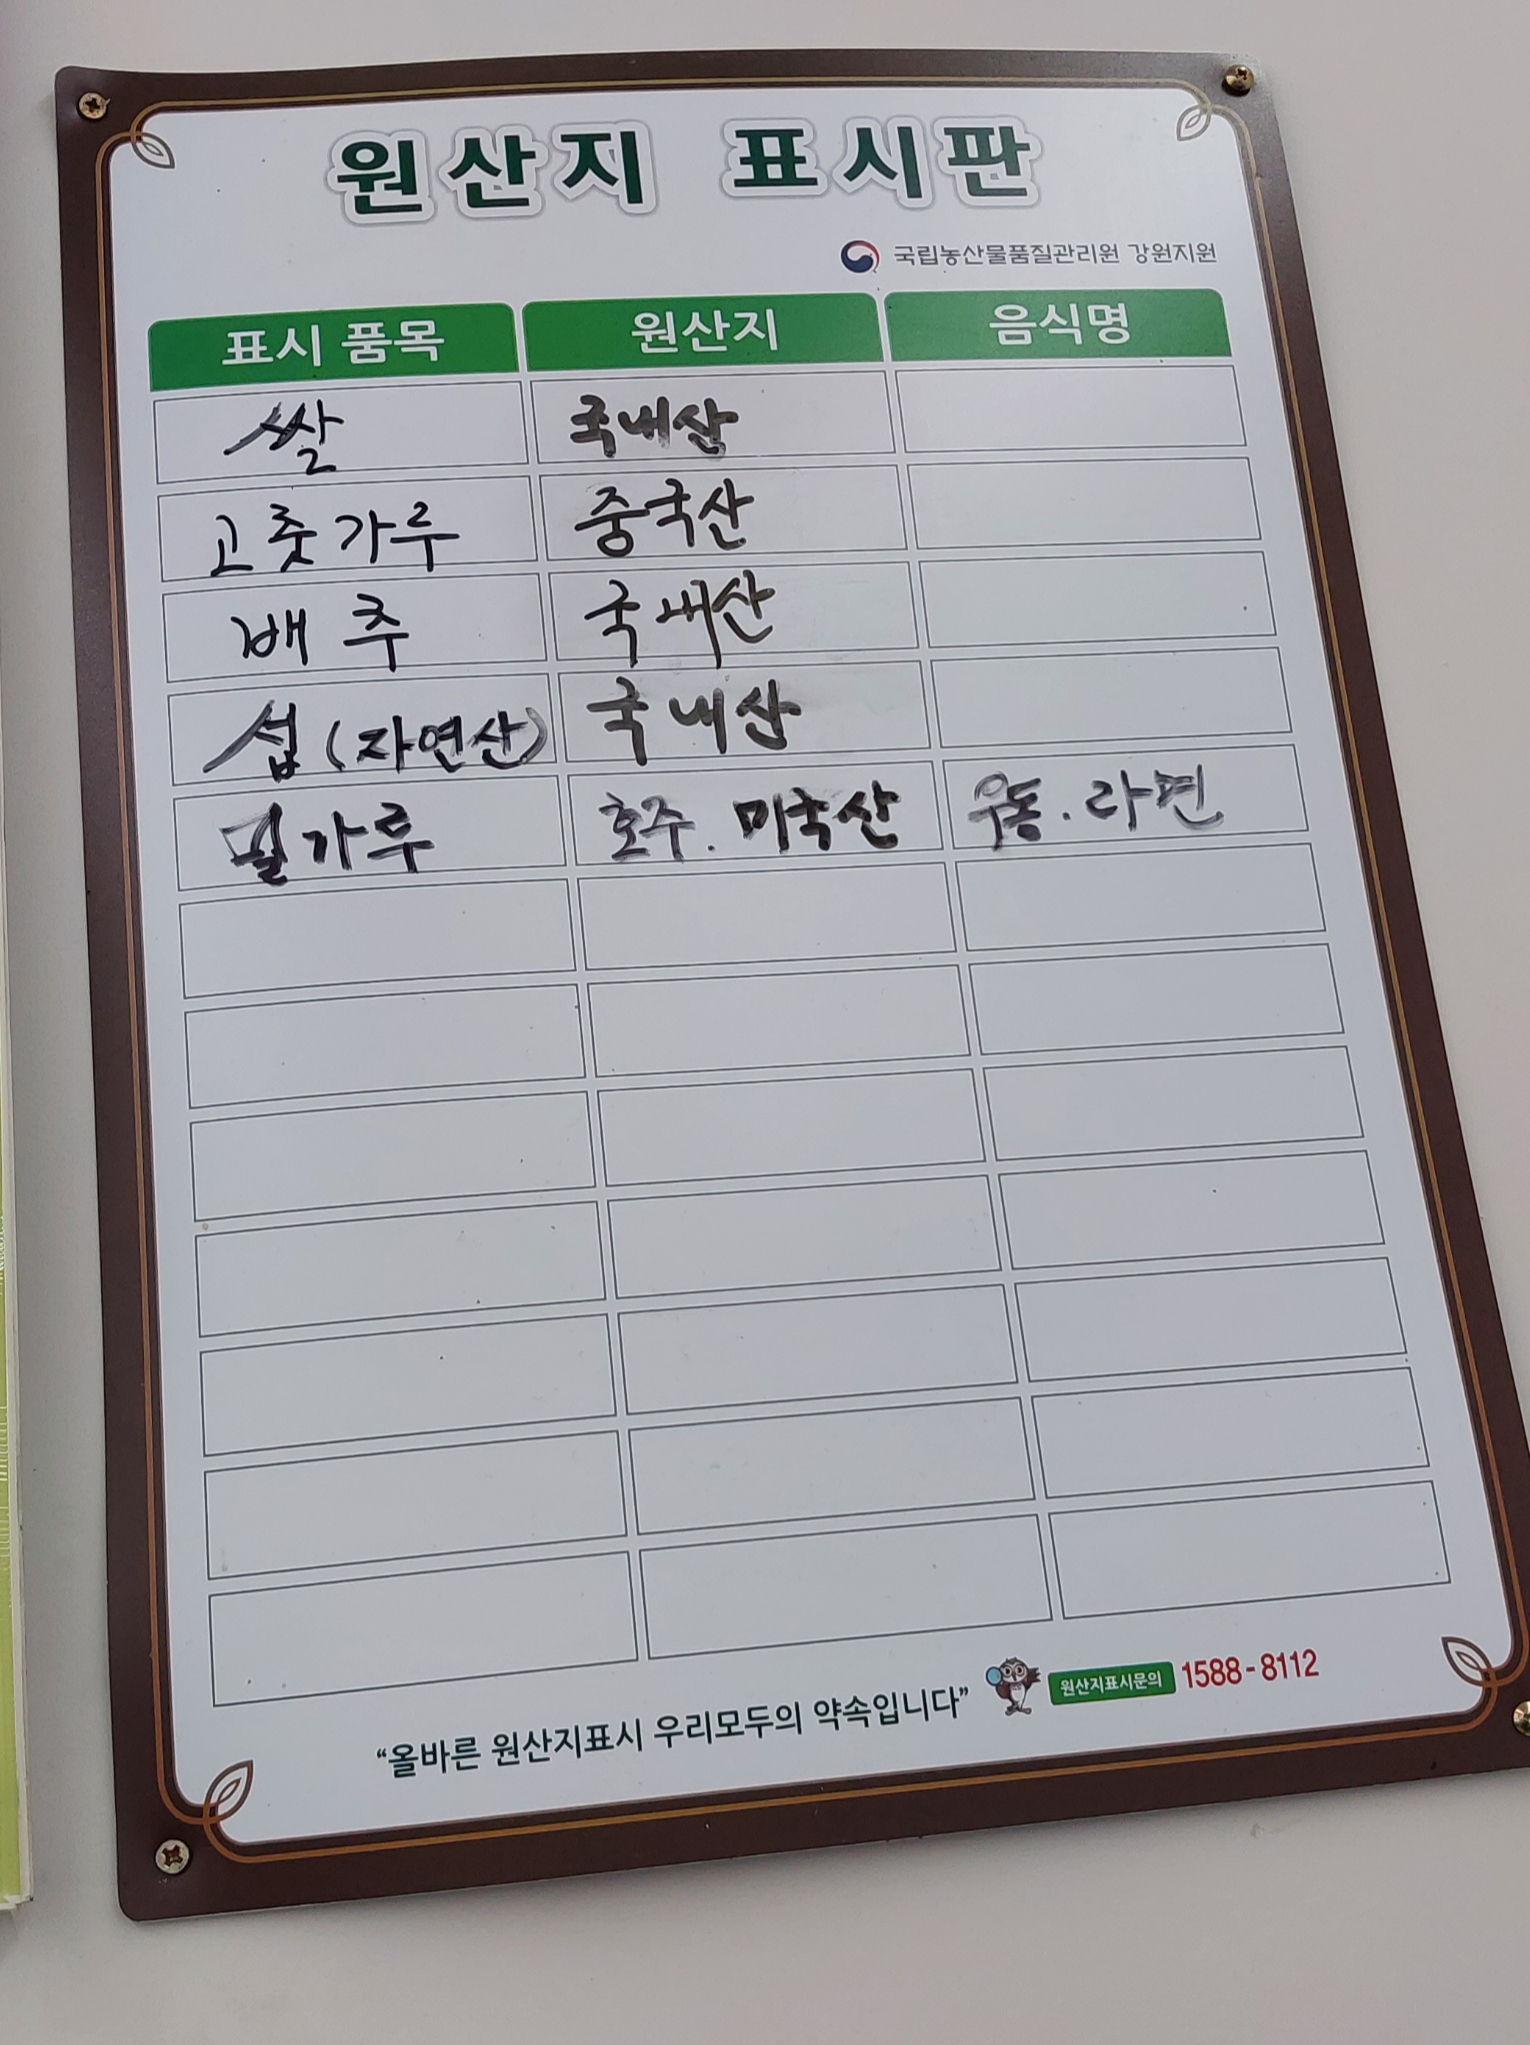 원산지 표시판
국립농산물품질관리원 강원지원
표시 품목 원산지 음식명
쌀 국내산
고춧가루 중국산
배추 국내산
섭(자연산) 국내산
밀가루 호주. 미국산 우동. 라면
“올바른 원산지표시 우리모두의 약속입니다” 원산지표시문의 1588-8112